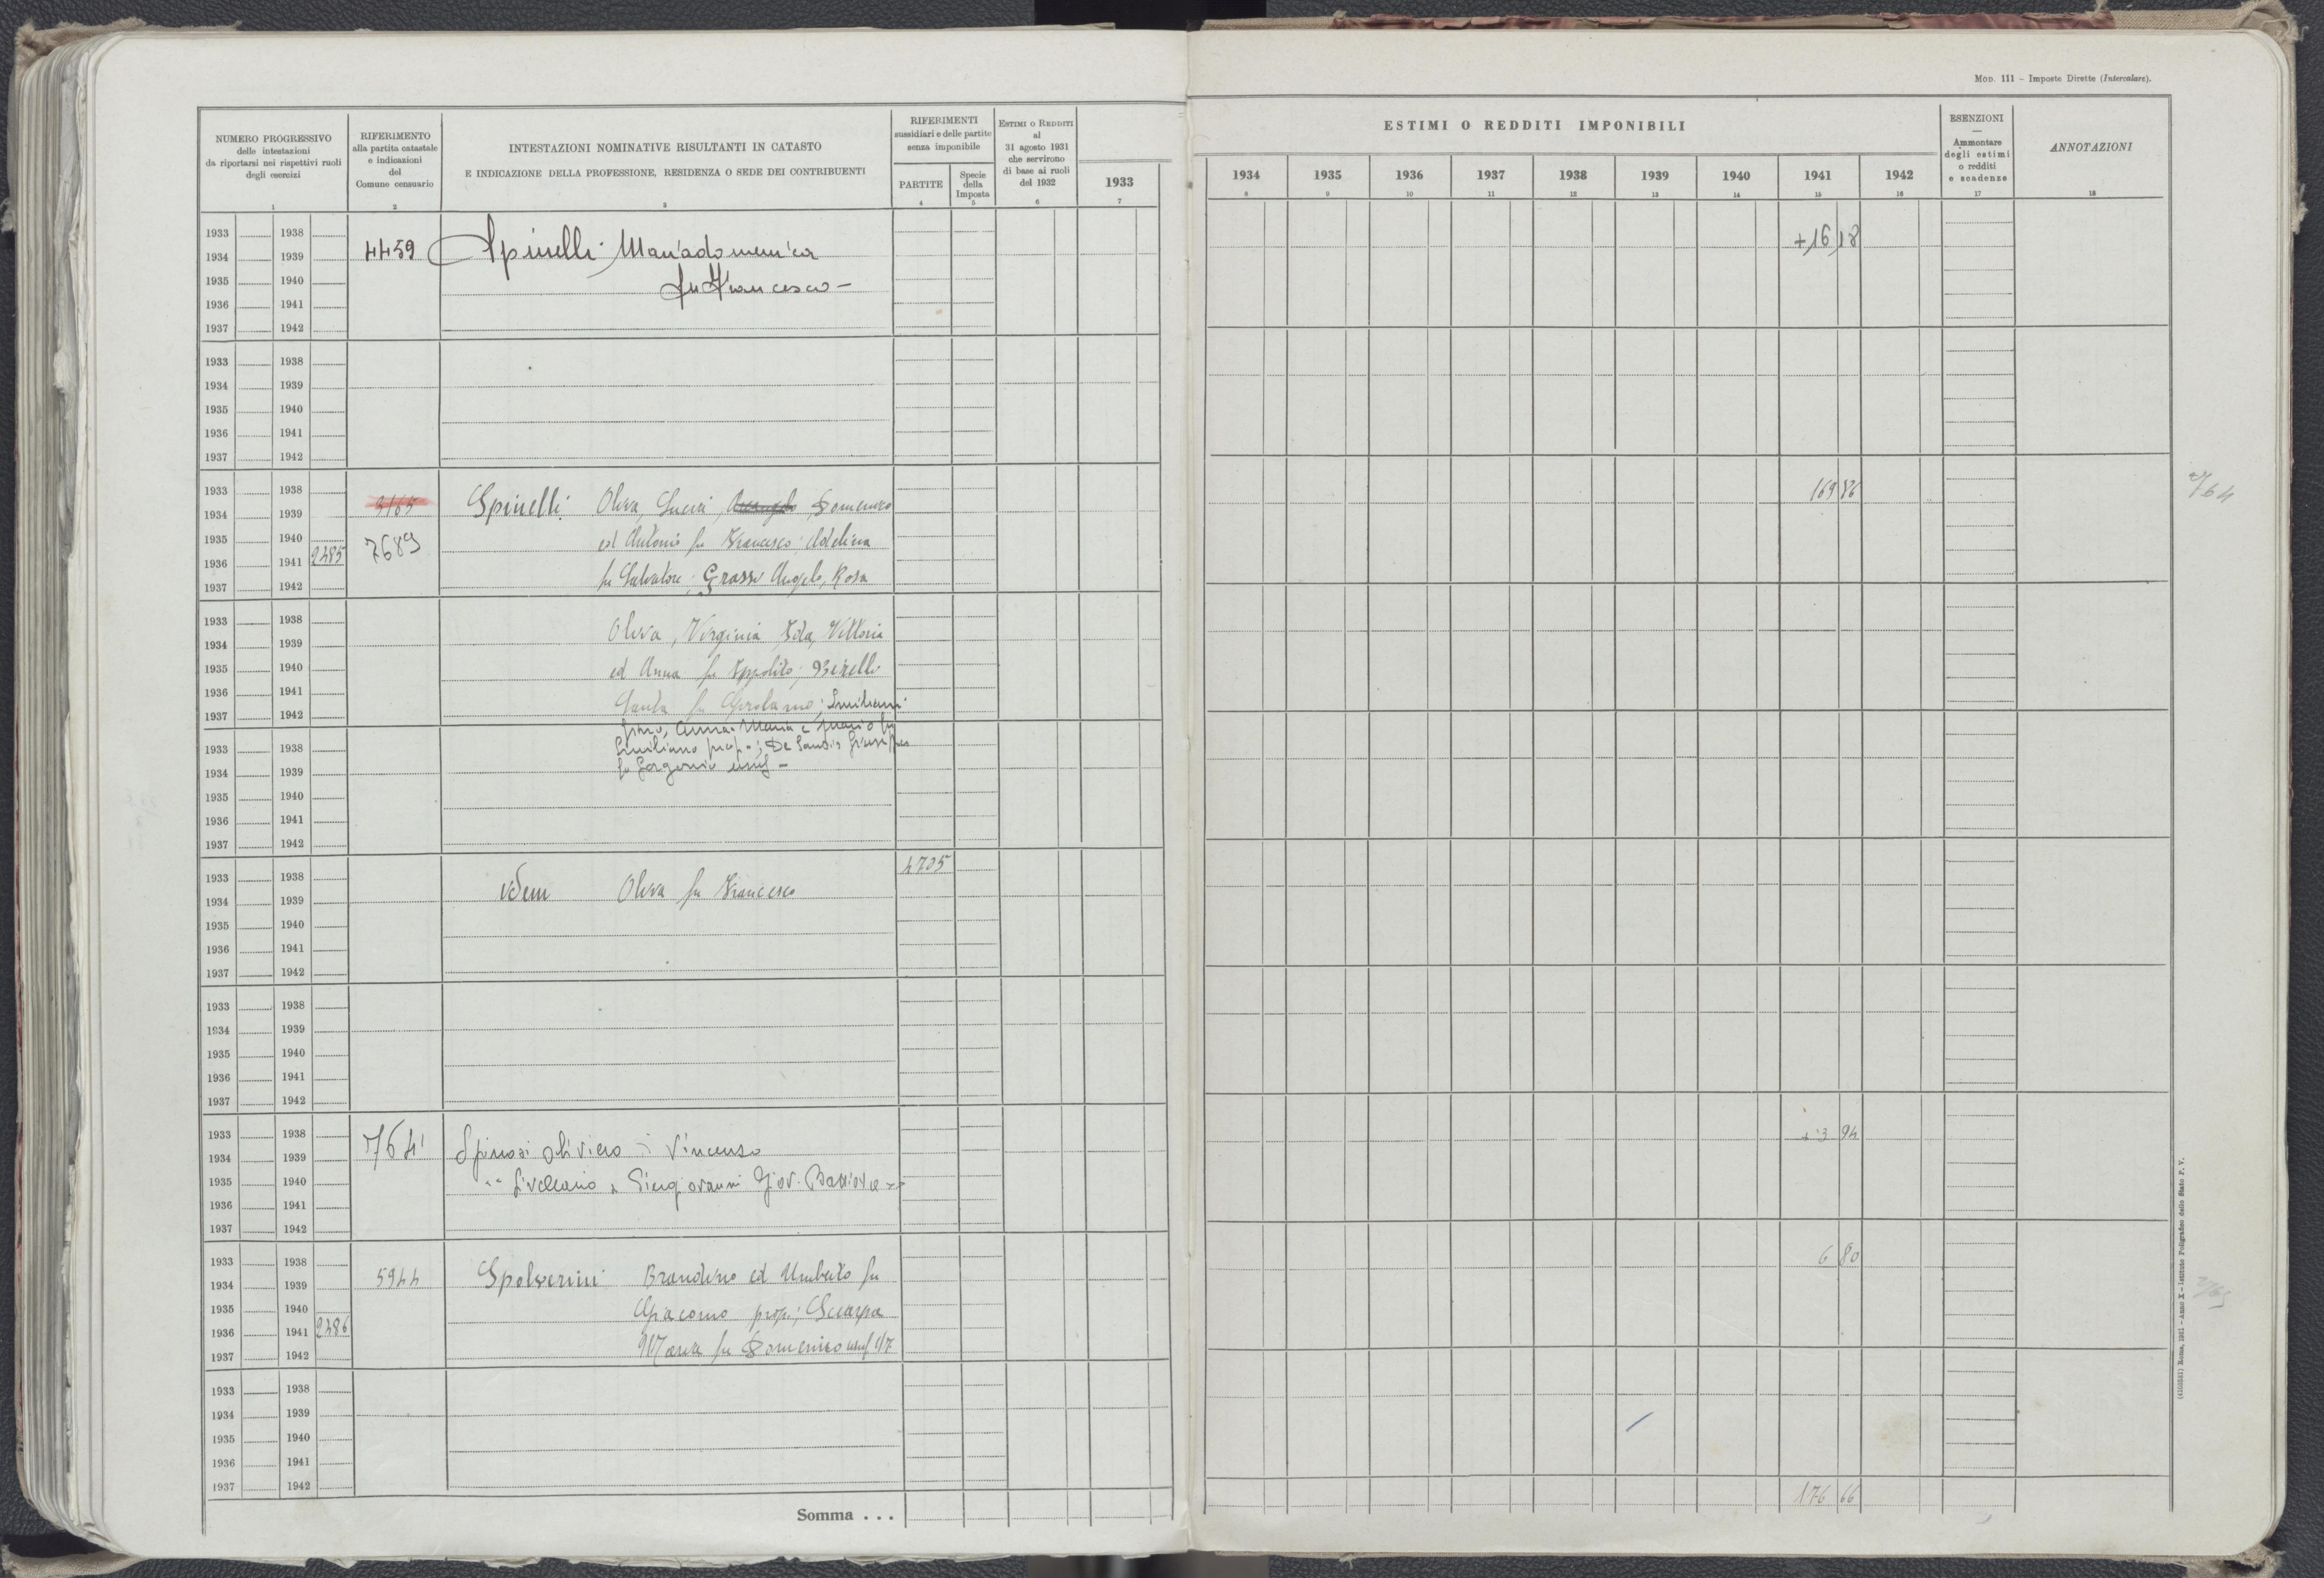 MOD. 111 – Imposte Dirette (Intercalare).
NUMERO PROGRESSIVO
delle intestazioni
da riportarsi nei rispettivi ruoli
degli esercizi
RIFERIMENTO
alla partita catastale
e indicazioni
del
Comune censuario
INTESTAZIONI NOMINATIVE RISULTANTI IN CATASTO
E INDICAZIONE DELLA PROFESSIONE, RESIDENZA O SEDE DEI CONTRIBUENTI
RIFERIMENTI
sussidiari e delle partite
senza imponibile
PARTITE
Specie
della
Imposta
ESTIMI O REDDITI
al
31 agosto 1931
che servirono
di base ai ruoli
del 1932
1933
ESTIMI O REDDITI IMPONIBILI
1934 1935 1936 1937 1938 1939 1940 1941 1942
ESENZIONI
—
Ammontare
degli estimi
o redditi
e scadenze
ANNOTAZIONI
1 2 3 4 5 6 7 8 9 10 11 12 13 14 15 16 17 18
1933 1938
1934 1939 4459 Spinelli Mariadomenica +16 18
1935 1940 fu Francesco –
1936 1941
1937 1942
1933 1938
1934 1939
1935 1940
1936 1941
1937 1942
1933 1938
1934 1939 3165 Spinelli Oliva, Lucia, Domenico 169 86
1935 1940 7689 ed Antonio fu Francesco; Adelina
1936 1941 2485
1937 1942 fu Salvatore; Grassi Angelo, Rosa
1933 1938 Oliva, Virginia, Ida, Vittoria
1934 1939
1935 1940 ed Anna fu Ippolito;
1936 1941 Santa fu Girolamo; Emiliani
1937 1942
Anna Maria e Mario fu
1933 1938 Emiliano prop.; De Santis Giuseppe
1934 1939 fu Gorgonio usuf –
1935 1940
1936 1941
1937 1942
4705
1933 1938 idem Oliva fu Francesco
1934 1939
1935 1940
1936 1941
1937 1942
1933 1938
1934 1939
1935 1940
1936 1941
1937 1942
1933 1938 7641 Spinosi Oliviero Vincenzo + 3 94
1934 1939
1935 1940 livellario a Piergiovanni Giov. Battista
1936 1941
1937 1942
1933 1938 6 80
1934 1939 5944 Spolverini Brandino ed Umberto fu
1935 1940 Giacomo prop; Sciarpa
1936 1941 2486
1937 1942 Maria fu Domenico usuf 1/7
1933 1938
1934 1939
1935 1940
1936 1941
1937 1942
Somma . . . 176 66
764
(4100551) Roma, 1931 - Anno X - Istituto Poligrafico dello Stato P. V.